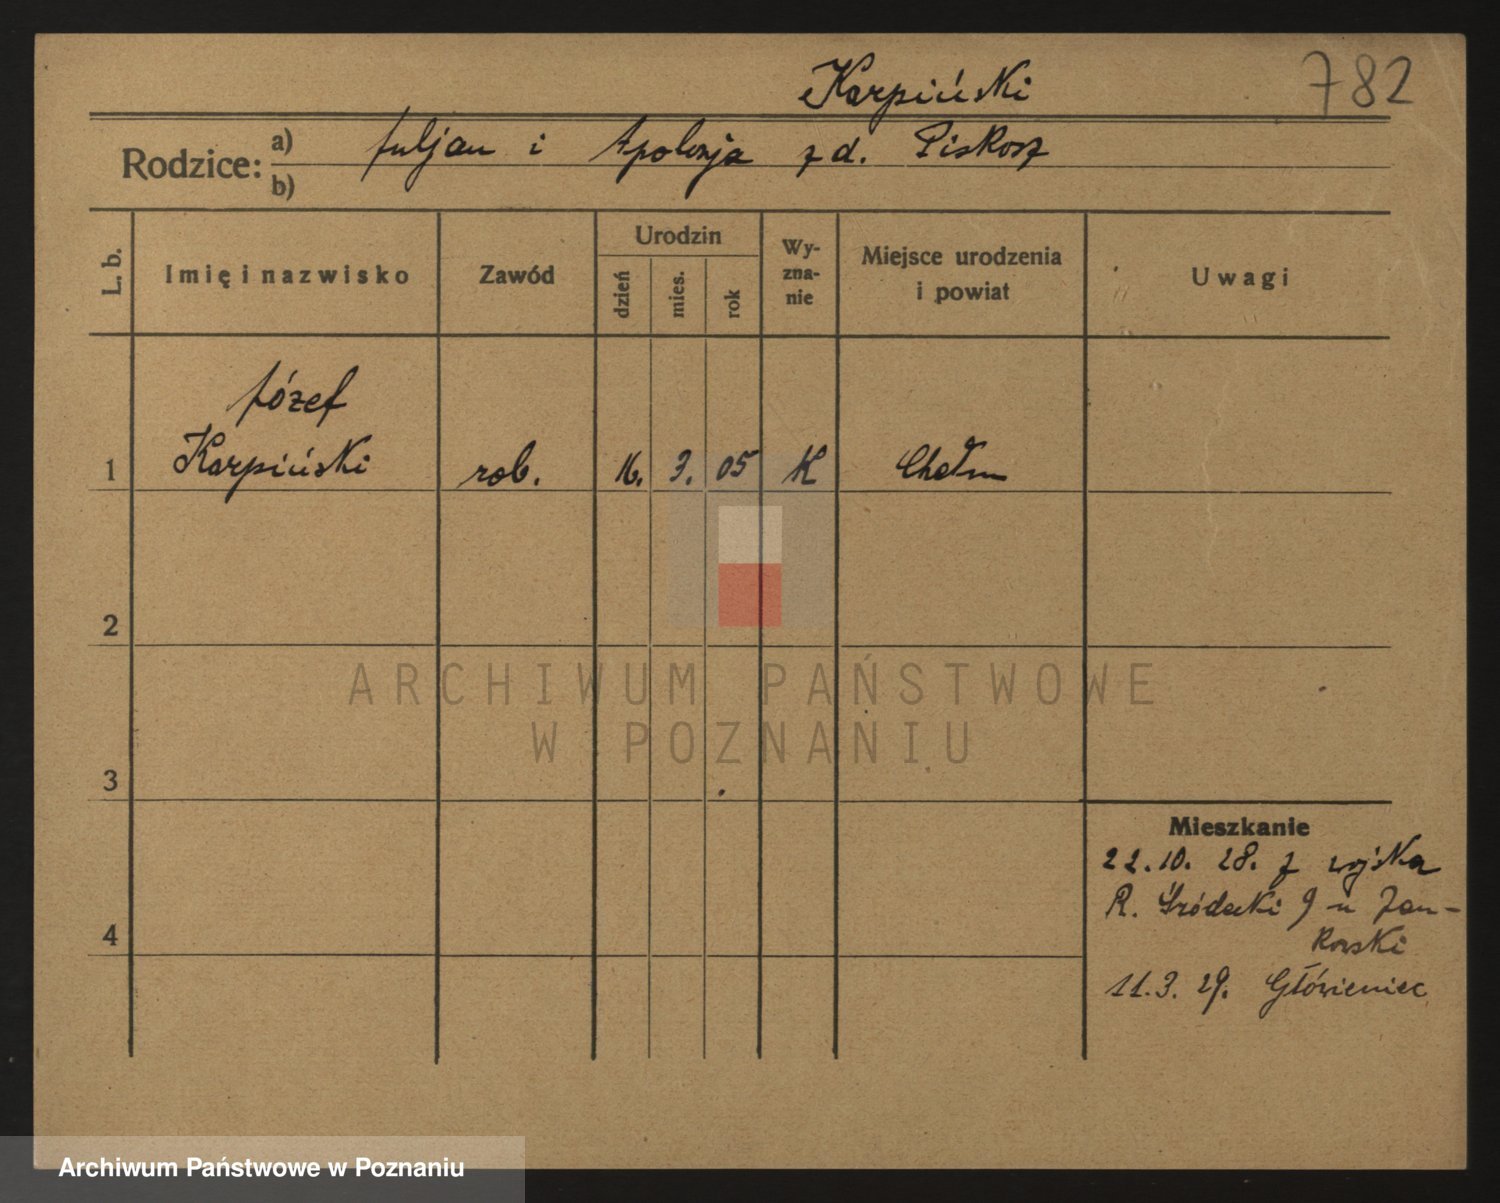 Karpiński 782
Rodzice: a) Juljan i Apolonja z d. Piskosz
b)
L. b. Imię i nazwisko Zawód Urodzin dzień mies. rok Wyznanie Miejsce urodzenia i powiat Uwagi
Józef
1 Karpiński rob. 16. 3. 05 K Chełm
2
ARCHIWUM PAŃSTWOWE
W POZNANIU
3
Mieszkanie
22.10. 28. z wojska
R. Gródecki 9 u Jan-
kowski
4
11.3. 29. Główieniec
Archiwum Państwowe w Poznaniu